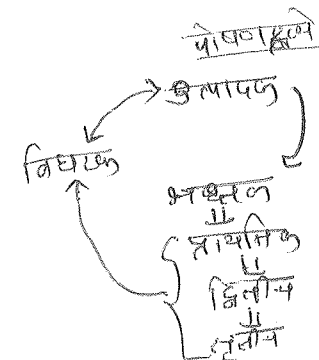 पोषण
उत्पादक
विघटक
भक्षक
प्राथमिक
द्वितीय
तृतीय